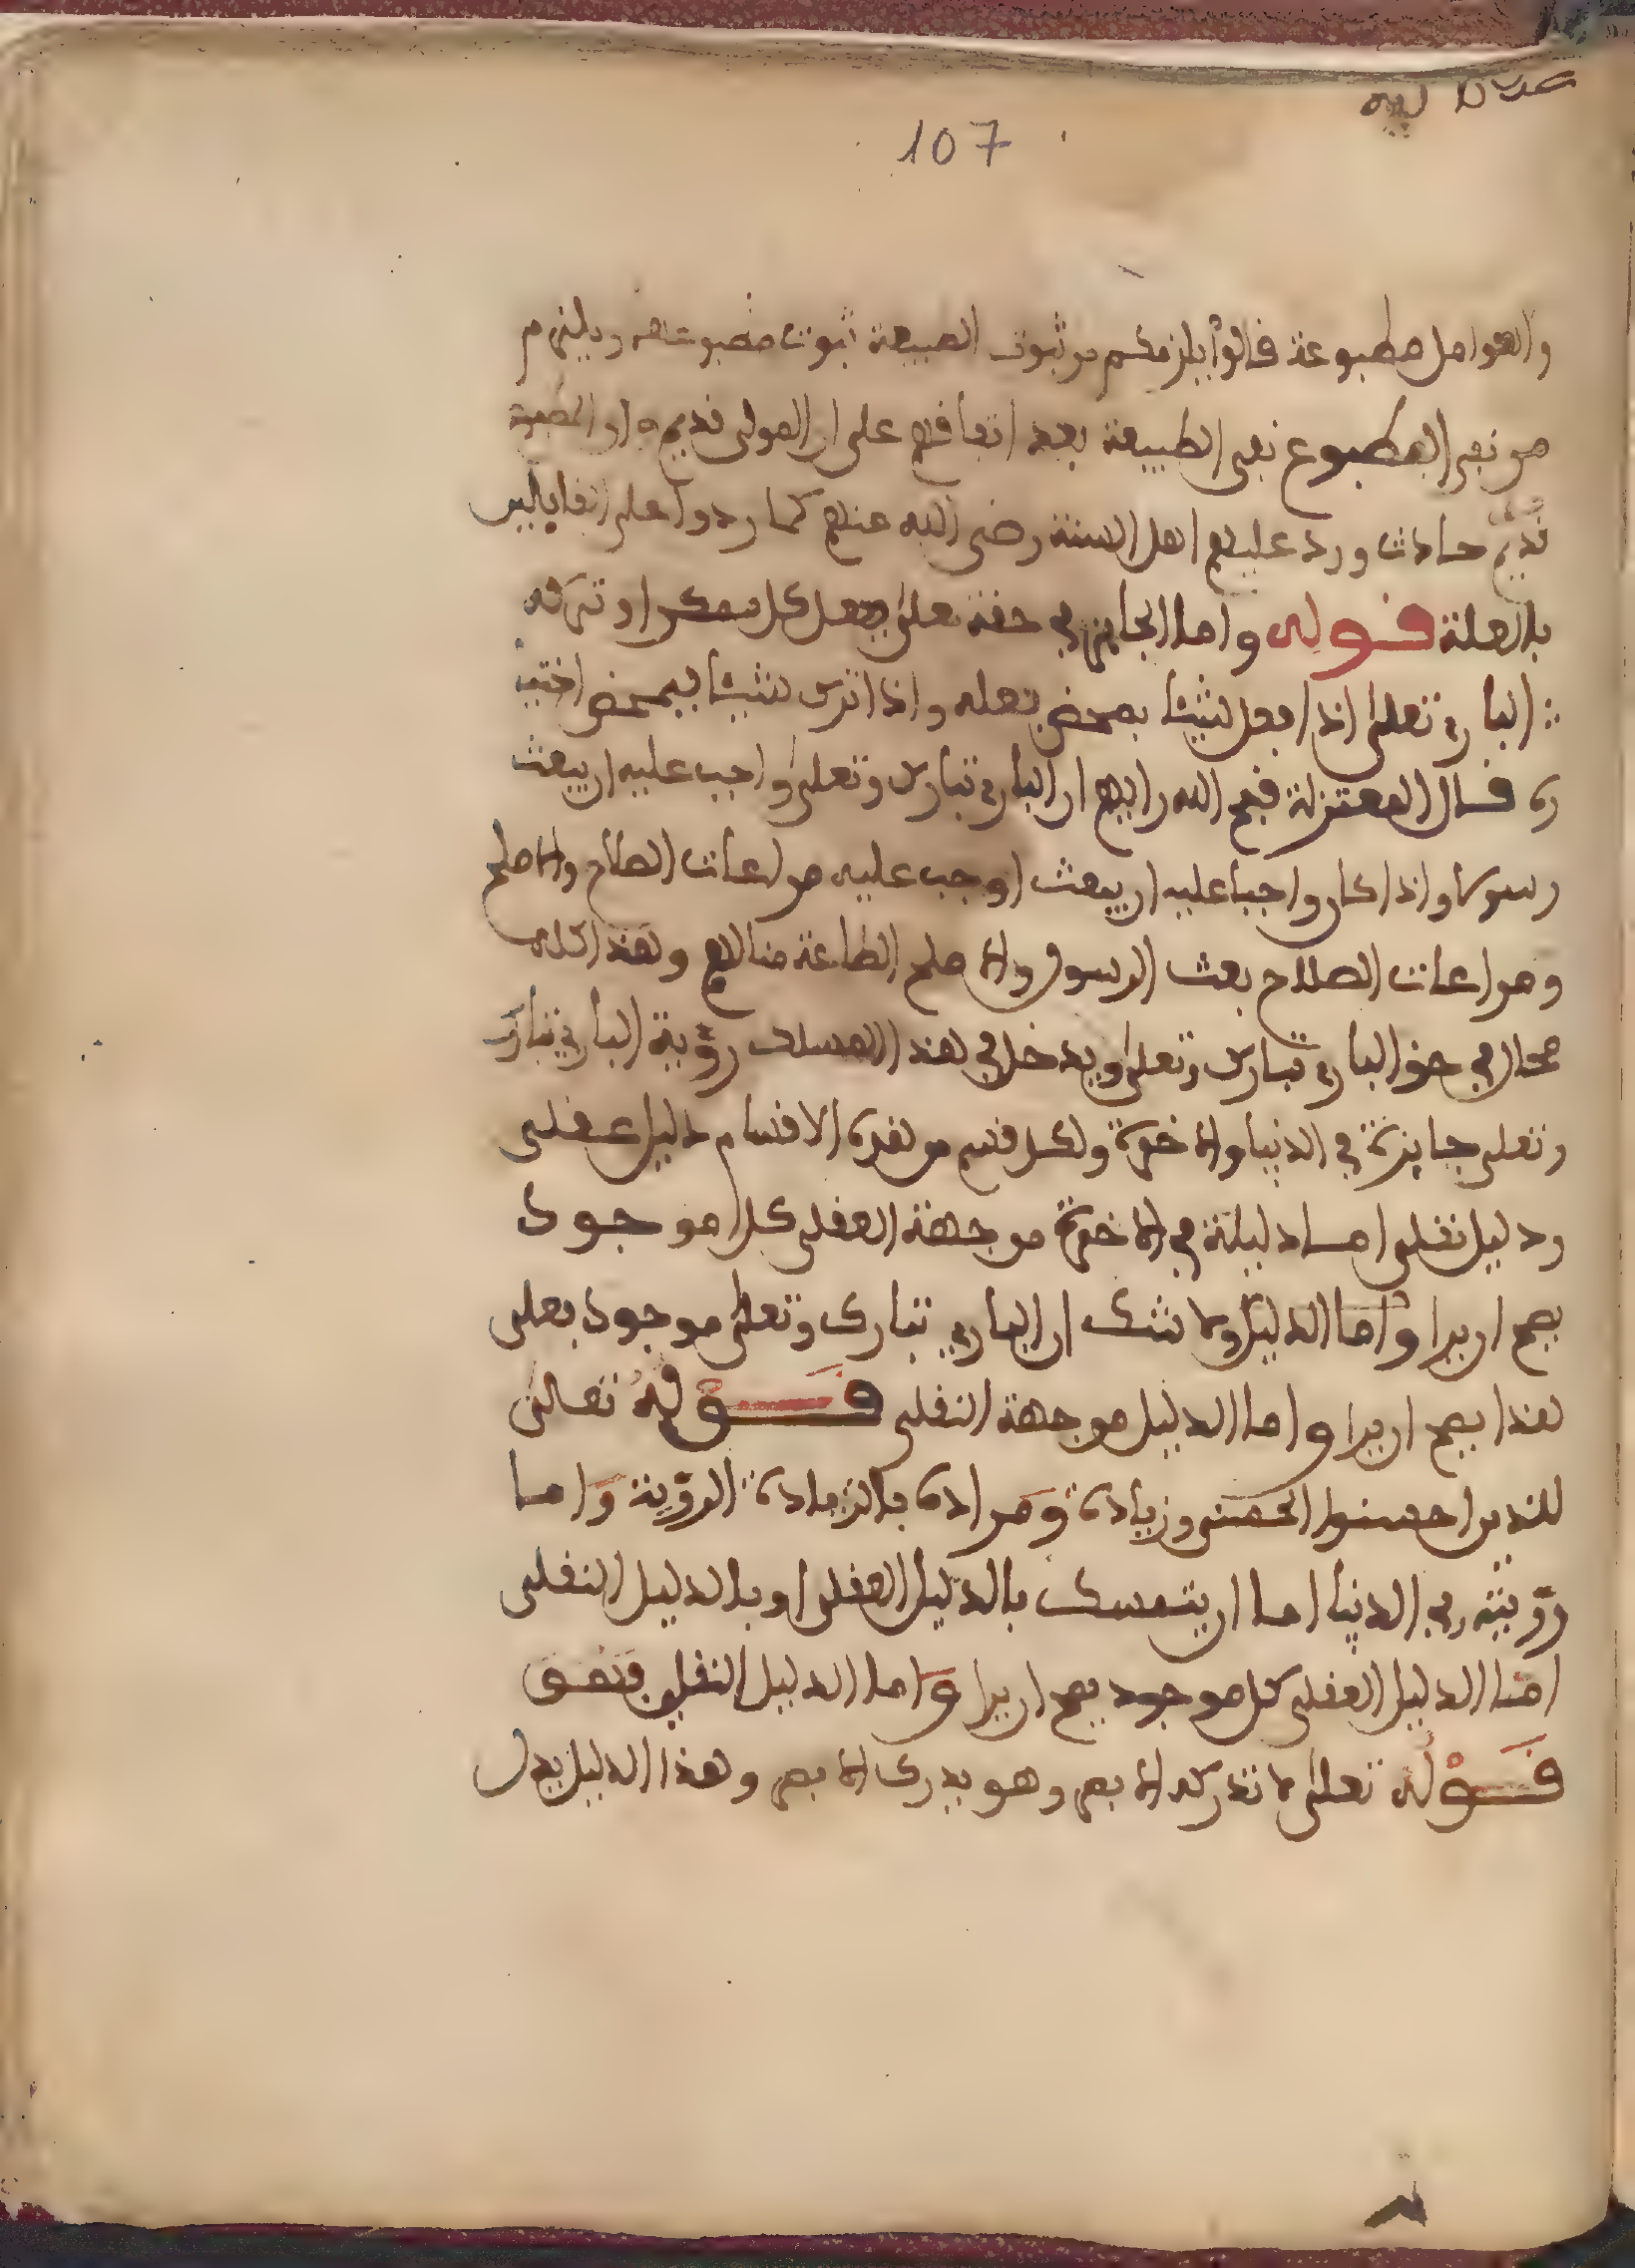 107
والعوامل مطبوعة قالوا يلزمكم من ثبوت الطبيعة ثبوت مطبوعتاهم ويلزم
من نفي المطبوع نفي الطبيعة بعد اتفاقهم على ان المولى قديم
قديم حادث ورد عليهم اهل السنة رضي الله عنهم كما ردوا على القايلين
بالعلة قوله واما الجايز في حقه تعلى ففعل كل ممكن او تركه
الباري تعلى اذا فعل شيئا بمحض فعله واذا ترك شيئا فبمحض اختيا
ره قال المعتزلة قبح الله رايهم ان الباري تبارك وتعلى واجب عليه ان يبعث
رسولا واذا كان واجبا عليه ان يبعث اوجب عليه مراعات الصلاح والاصلح
ومراعات الصلاح بعث الرسول والاصلح الطاعة منا لهم وهذا كله
محال في حق الباري تبارك وتعلى ويدخل في هذا المسلك رؤية الباري تبارك
وتعلى جايزة في الدنيا والاخرة ولكل قسم من هذه الاقسام دليل عقلي
ودليل نقلي امسا دليله في الاخرة من جهة العقلي كل موجود
يصح ان يرا واما الدليل ولا شك ان الباري تبارك وتعلى موجود فعلى
هذا يصح ان يرا واما الدليل من جهة النقلي قوله تعالى
للذين احسنوا الحسنى وزيادة ومراده بالزيادة الرؤية واما
رؤيته في الدنيا اما ان يتمسك بالدليل العقلي او بالدليل النقلي
اما الدليل العقلي كل موجود يصح ان يرا واما الدليل النقلي فنفس
قوله تعلى لا تدركه الابصر وهو يدرك الابصر وهذا الدليل يدل